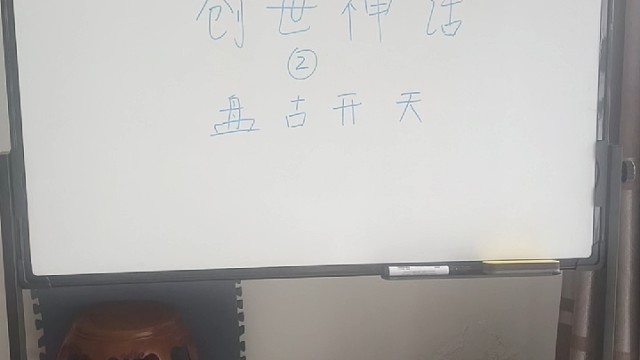 创世神话
②
盘古开天